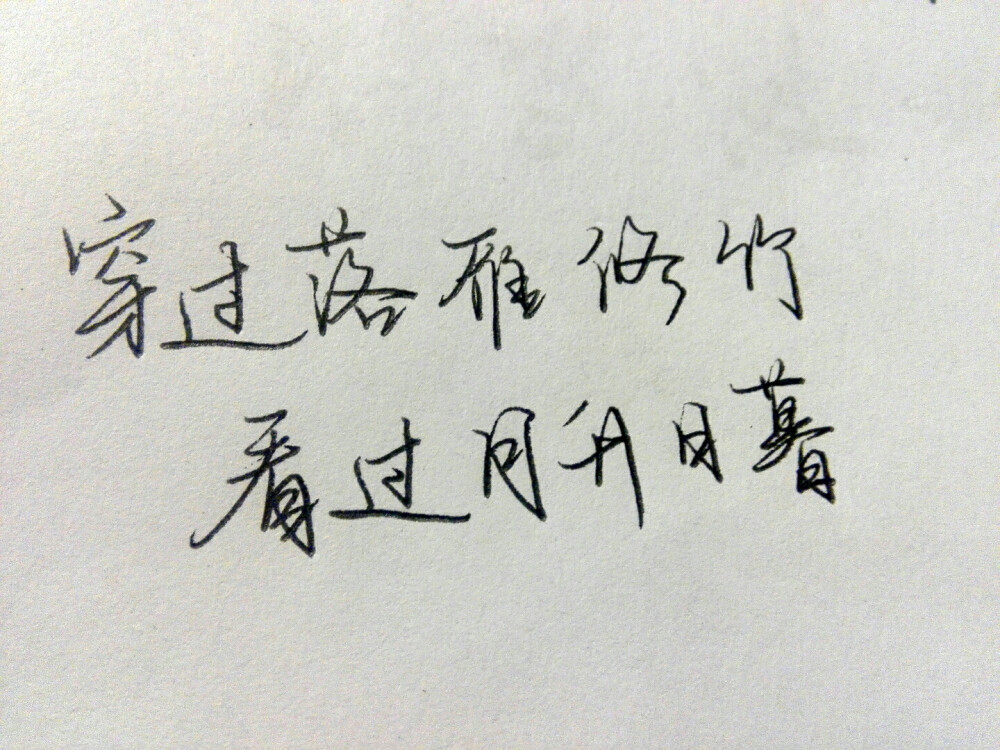 穿过落雁修竹
看过月升日暮